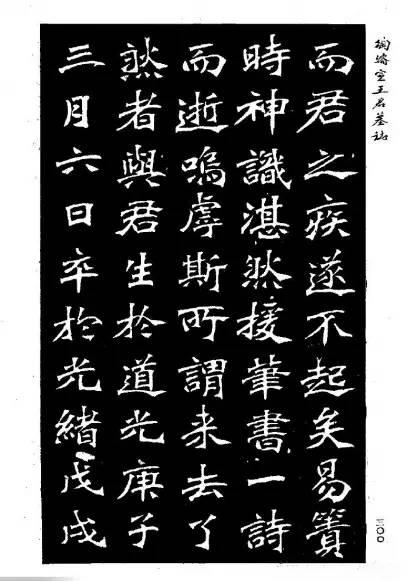 王君墓誌
而君之疾遂不起矣易簀
時神識湛然接筆書一詩
而逝嗚虖斯所謂来去了
然者與君生於道光庚子
三月六日卒於光緒戊戌
三〇〇